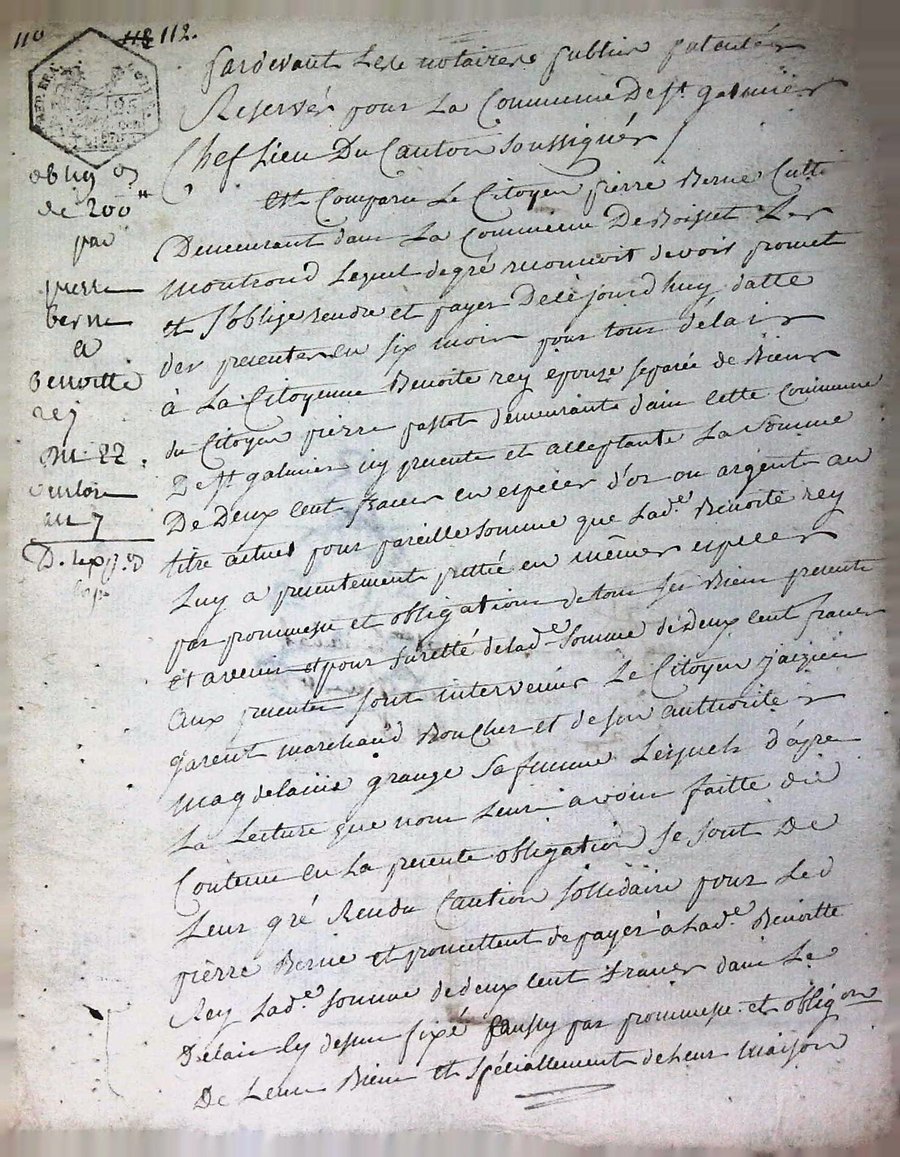 110
112 112.
pardevant Les notaires publics patentés
Reservés pour La Commune De st galmier
Chef Lieu Du Canton soussignés
est Comparu Le Citoyen pierre Berne Cultr
Demeurant dans La Commune De Boisset Les
montrond Lequel de gré reconnoit devoir promet
et s'oblige rendre et payer De ce jourd'huy datte
des presentes en six mois pour tous délais
à La Citoyenne Benoite rey epouze separée de Biens
du Citoyen pierre passot demeurante dans cette Commune
De st galmier icy presente et acceptante La somme
De Deux cent francs en espéces d'or ou argent au
titre actuel pour pareille somme que Lade. Benoite rey
Luy a presentement prettée en mêmes espéces
par prommesse et obligation de tous ses Biens presents
et avenir et pour suretté de Lade somme de Deux cent francs
aux presentes sont intervenus Le Citoyen jacques
garent marchand Boucher et de son authorité
magdelaine grange sa femme Lesquels d'âpre
La Lecture que nous Leurs avons faitte du
Contenu en La presente obligation se sont De
Leur gré Rendu Caution sollidaire pour Led
pierre Berne et promettent de payer à Lade Benoitte
Rey Lade somme de deux cent francs dans Le
Délai cy dessus fixé aussy par prommesse et obligon
De Leurs Biens et spéciallement de Leur maison
obligon
de 200tt
par
pierre
berne
a
benoitte
rey
du 22
ventose
an 7
D. exp.